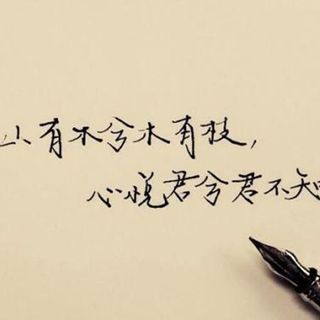 山有木兮木有枝，
心悦君兮君不知